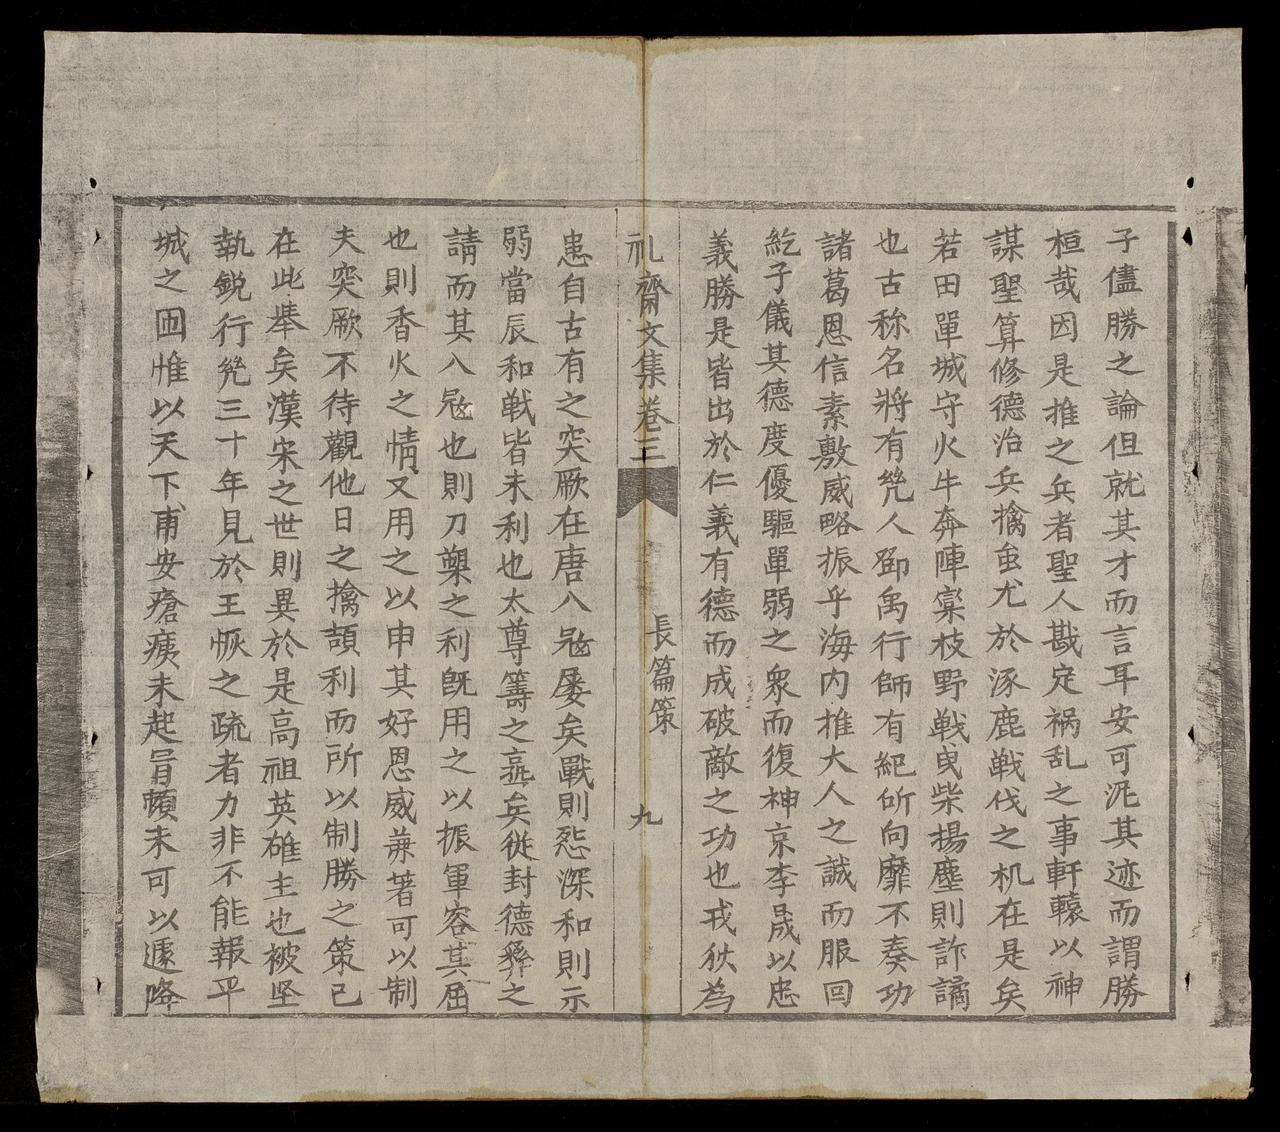 子儘勝之論但就其才而言耳安可泥其迹而謂勝
桓哉因是推之兵者聖人戡定禍乱之事軒轅以神
謀聖算修德治兵擒蚩尤於涿鹿戦伐之机在是矣
若田單城守火牛奔陣欒枝野戦曳柴揚塵則詐譎
也古称名將有幾人鄧禹行師有紀所向靡不奏功
諸葛恩信素敷威略振乎海内推大人之誠而服回
紇子儀其德度優驅單弱之衆而復神京李晟以忠
義勝是皆出於仁義有德而成破敵之功也戎狄為
礼齋文集卷三
長篇策
九
患自古有之突厥在唐入寇屡矣戰則怨深和則示
弱當辰和戦皆未利也太尊籌之熟矣從封德彝之
請而其入寇也則刀槊之利既用之以振軍容其屈
也則香火之情又用之以申其好恩威兼著可以制
夫突厥不待觀他日之擒頡利而所以制勝之策已
在此舉矣漢宋之世則異於是高祖英雄主也被坚
執鋭行幾三十年見於王恢之疏者力非不能報平
城之囲惟以天下甫安瘡痍未起冒頓未可以遽降